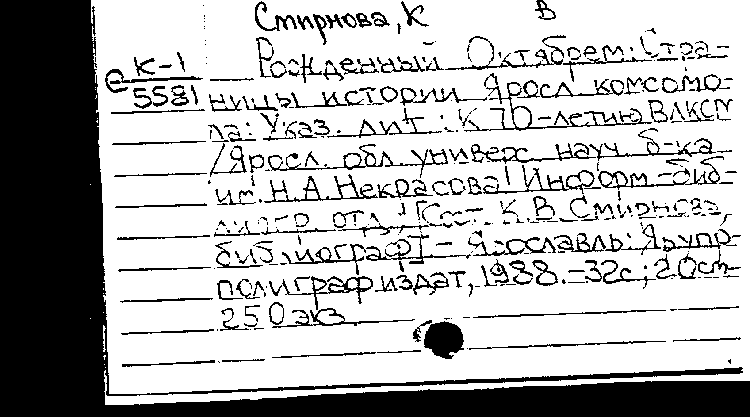 Смирнова, К В
Рожденный Октябрем: Стра-
К-1
5581
ницы истории Яросл. комсомо-
ла: Указ. лит.: К 70-летию ВЛКСМ
/Яросл. обл. универс. науч. б-ка
им. Н.А. Некрасова! Информ.-биб-
лиогр. отд.; [Сост. К.В. Смирнова,
библиограф] - Ярославль: Ярупр-
полиграфиздат, 1988. - 32с; 20см
250 экз.